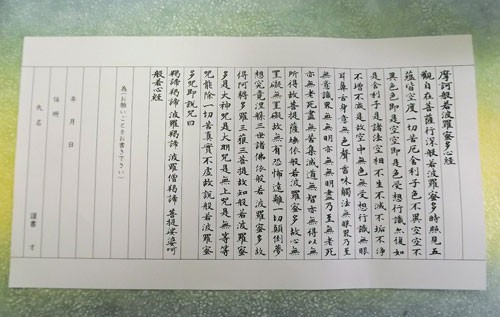 摩訶般若波羅蜜多心経
觀自在菩薩行深般若波羅蜜多時照見五
蘊皆空度一切苦厄舎利子色不異空空不
異色色即是空空即是色受想行識亦復如
是舎利子是諸法空相不生不滅不垢不浄
不増不減是故空中無色無受想行識無眼
耳鼻舌身意無色聲香味觸法無眼界乃至
無意識界無無明亦無無明盡乃至無老死
亦無老死盡無苦集滅道無智亦無得以無
所得故菩提薩埵依般若波羅蜜多故心無
罣礙無罣礙故無有恐怖遠離一切顛倒夢
想究竟涅槃三世諸佛依般若波羅蜜多故
得阿耨多羅三藐三菩提故知般若波羅蜜
多是大神呪是大明呪是無上呪是無等等
呪能除一切苦真實不虚故説般若波羅蜜
多呪即説呪曰
羯諦羯諦 波羅羯諦 波羅僧羯諦 菩提娑婆呵
般若心経
為(お願いごとをお書き下さい)
年 月 日
住所
氏名 謹書 才